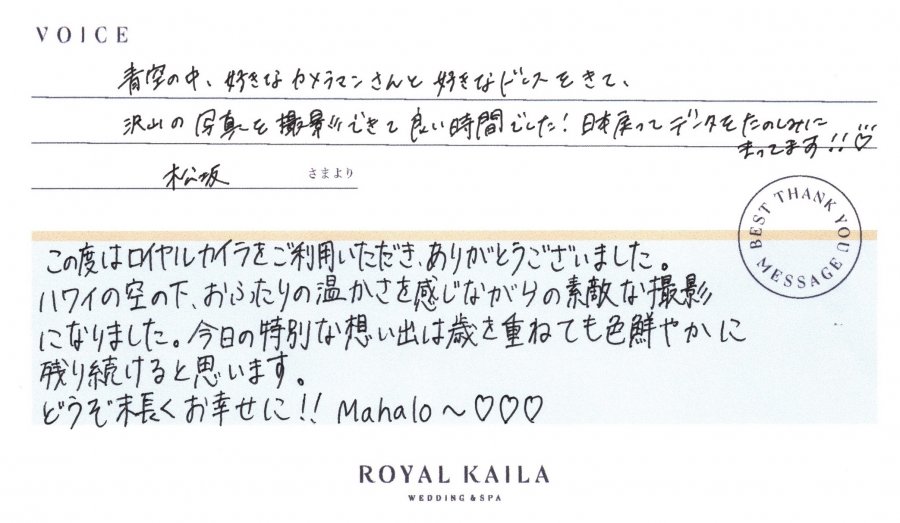 VOICE
青空の中、好きなカメラマンさんと好きなドレスをきて、
沢山の写真を撮影できて良い時間でした！日本戻ってデータをたのしみに
まってます!!♡
松坂 さまより
BEST THANK YOU MESSAGE
この度はロイヤルカイラをご利用いただき、ありがとうございました。
ハワイの空の下、おふたりの温かさを感じながらの素敵な撮影
になりました。今日の特別な想い出は歳を重ねても色鮮やかに
残り続けると思います。
どうぞ末長くお幸せに!! Mahalo～♡♡♡
ROYAL KAILA
WEDDING & SPA